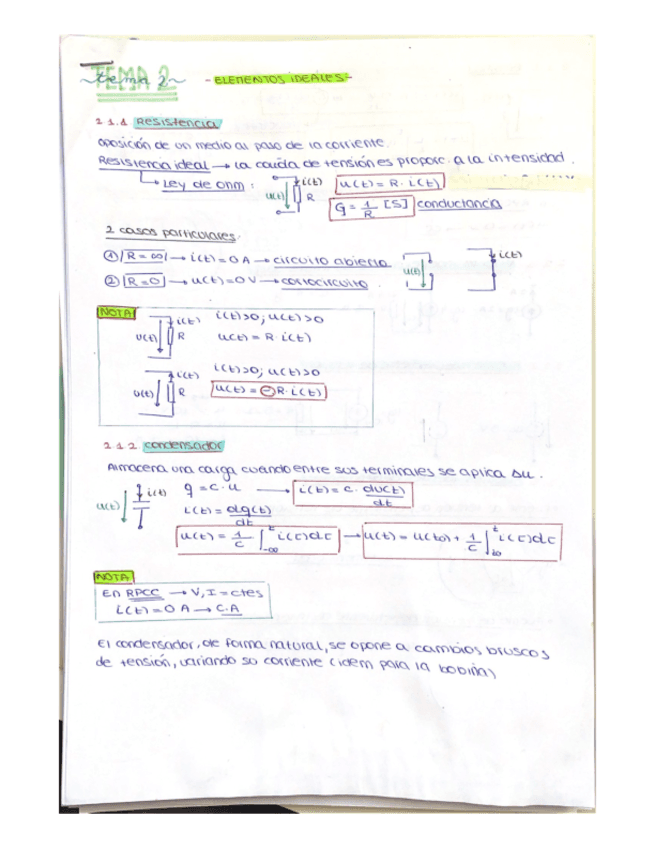 ~tema 2~ -ELEMENTOS IDEALES-
TEMA 2
2.1.1 Resistencia
oposición de un medio al paso de la corriente.
Resistencia ideal → La caída de tensión es proporc. a la intensidad.
Ley de Ohm: u(t) i(t) R u(t) = R · i(t)
G = 1/R [S] conductancia
2 casos particulares.
① R = ∞ → i(t) = 0 A → circuito abierto
② R = 0 → u(t) = 0 V → cortocircuito.
u(t) i(t)
NOTA
i(t) i(t)>0; u(t)>0
u(t) R u(t) = R · i(t)
i(t) i(t)>0; u(t)>0
u(t) R u(t) = ⊖ R · i(t)
2.1.2 condensador
Almacena una carga cuando entre sus terminales se aplica Δu.
u(t) i(t) q = c · u → i(t) = c · du(t)/dt
i(t) = dq(t)/dt
u(t) = 1/c ∫_{-∞}^{t} i(τ)dτ → u(t) = u(t0) + 1/c ∫_{t0}^{t} i(τ)dτ
NOTA
En RPCC → V, I = ctes
i(t) = 0 A → C.A
El condensador, de forma natural, se opone a cambios bruscos
de tensión, variando su corriente (idem para la bobina)